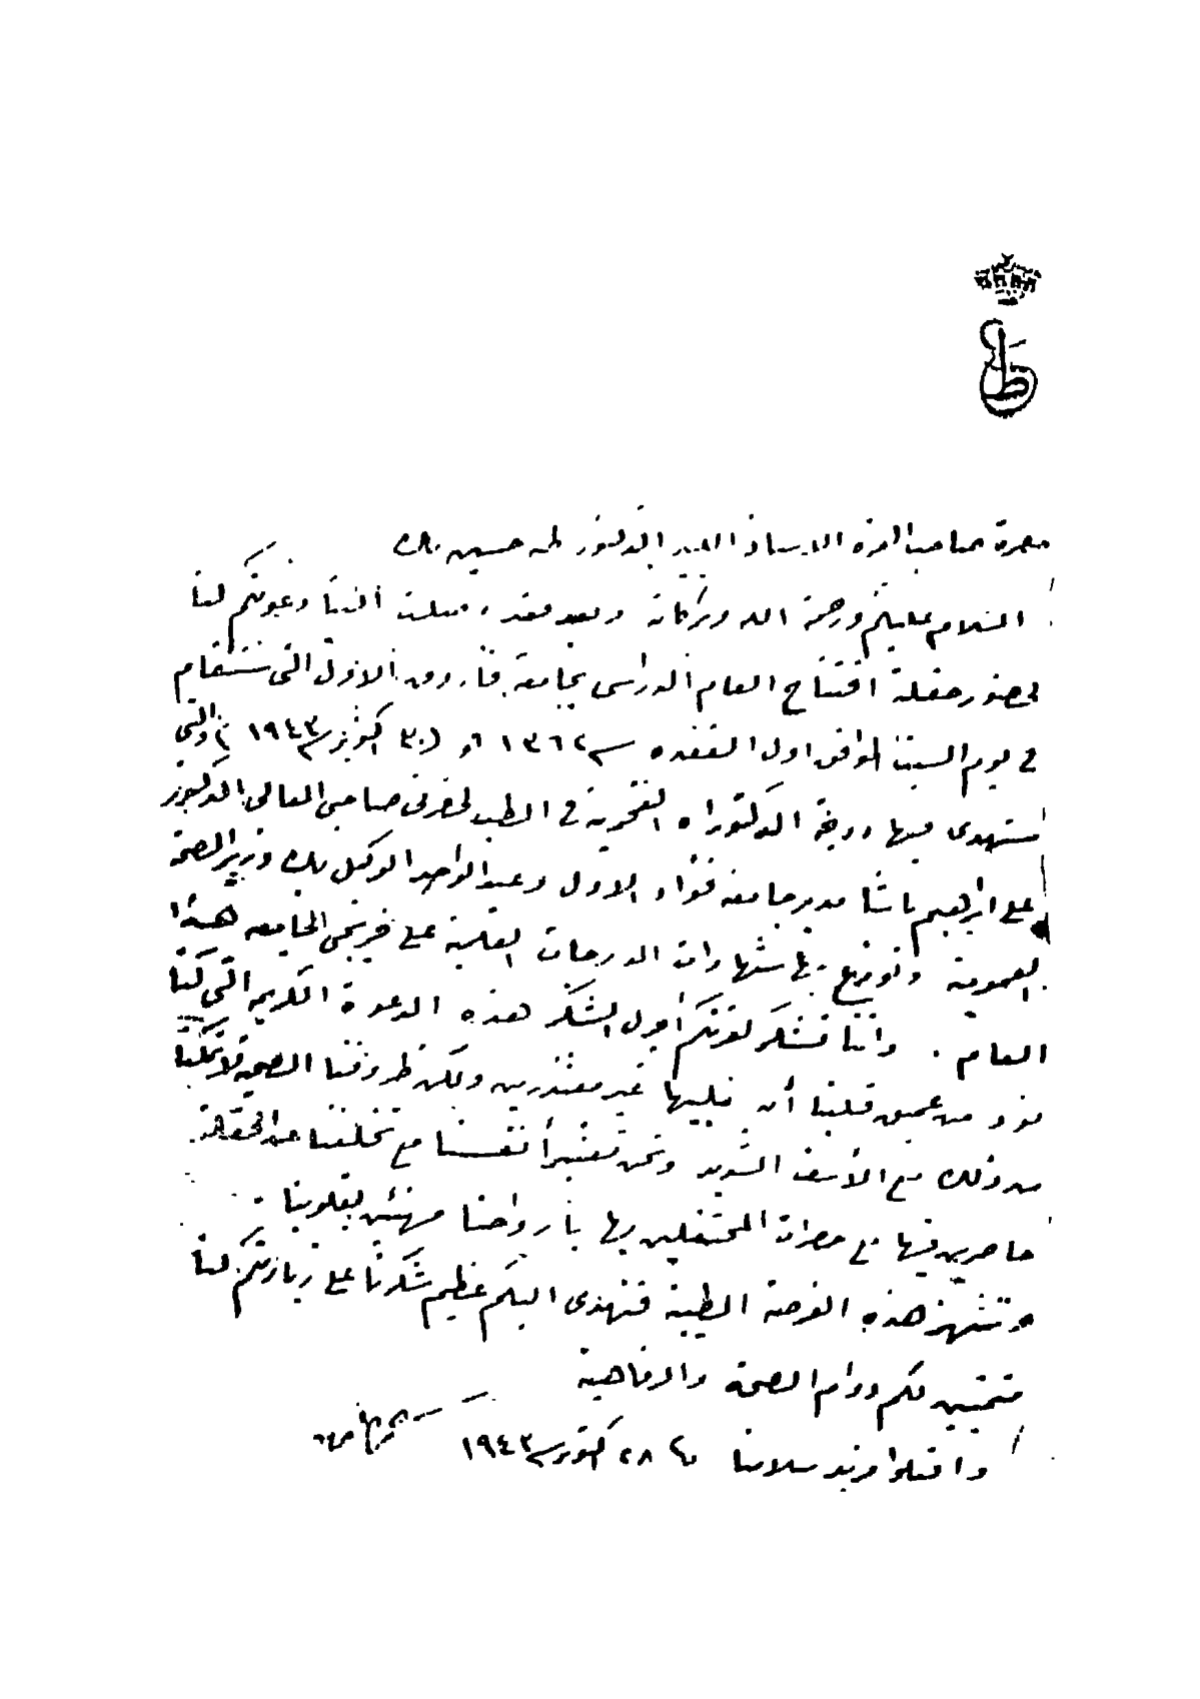 حضرة صاحب العزة الاستاذ الكبير الدكتور طه حسين بك
السلام عليكم ورحمة الله وبركاته وبعد فقد وصلت الينا دعوتكم لنا
لحضور حفلة افتتاح العام الدراسى بجامعة فاروق الاول التى ستقام
فى يوم السبت الموافق اول القعده سـ ١٣٦٢ـنة و (٣٠ اكتوبر سـ ١٩٤٣ـنة) والتى
ستهدى فيها درجة الدكتوراه الفخرية فى الطب لحضرتى صاحبى المعالى الدكتور
على ابراهيم باشا مدير جامعة فؤاد الاول وعبد الواحد الوكيل بك وزير الصحة
العمومية وتوزيع بها شهادات الدرجات العلمية على خريجى الجامعه هذا
العام . واننا نشكر لعزتكم أجزل الشكر هذه الدعوة الكريمه التى كنا
نود من عميق قلبنا أن نلبيها غير معتذرين ولكن ظروفنا الصحية لا تمكننا
من ذلك مع الأسف الشديد ونحن نعتبر أنفسنا مع تخلفنا عن الحفلة
حاضرين فيها مع حضرات المحتفلين بها بأرواحنا مهنئين بقلوبنا .
وننتهز هذه الفرصة الطيبة فنهدى اليكم عظيم شكرنا على زيارتكم لنا
متمنين لكم دوام الصحة والرفاهية
واقبلوا مزيد سلامنا ٢٨ اكتوبر سـ ١٩٤٣ـنة